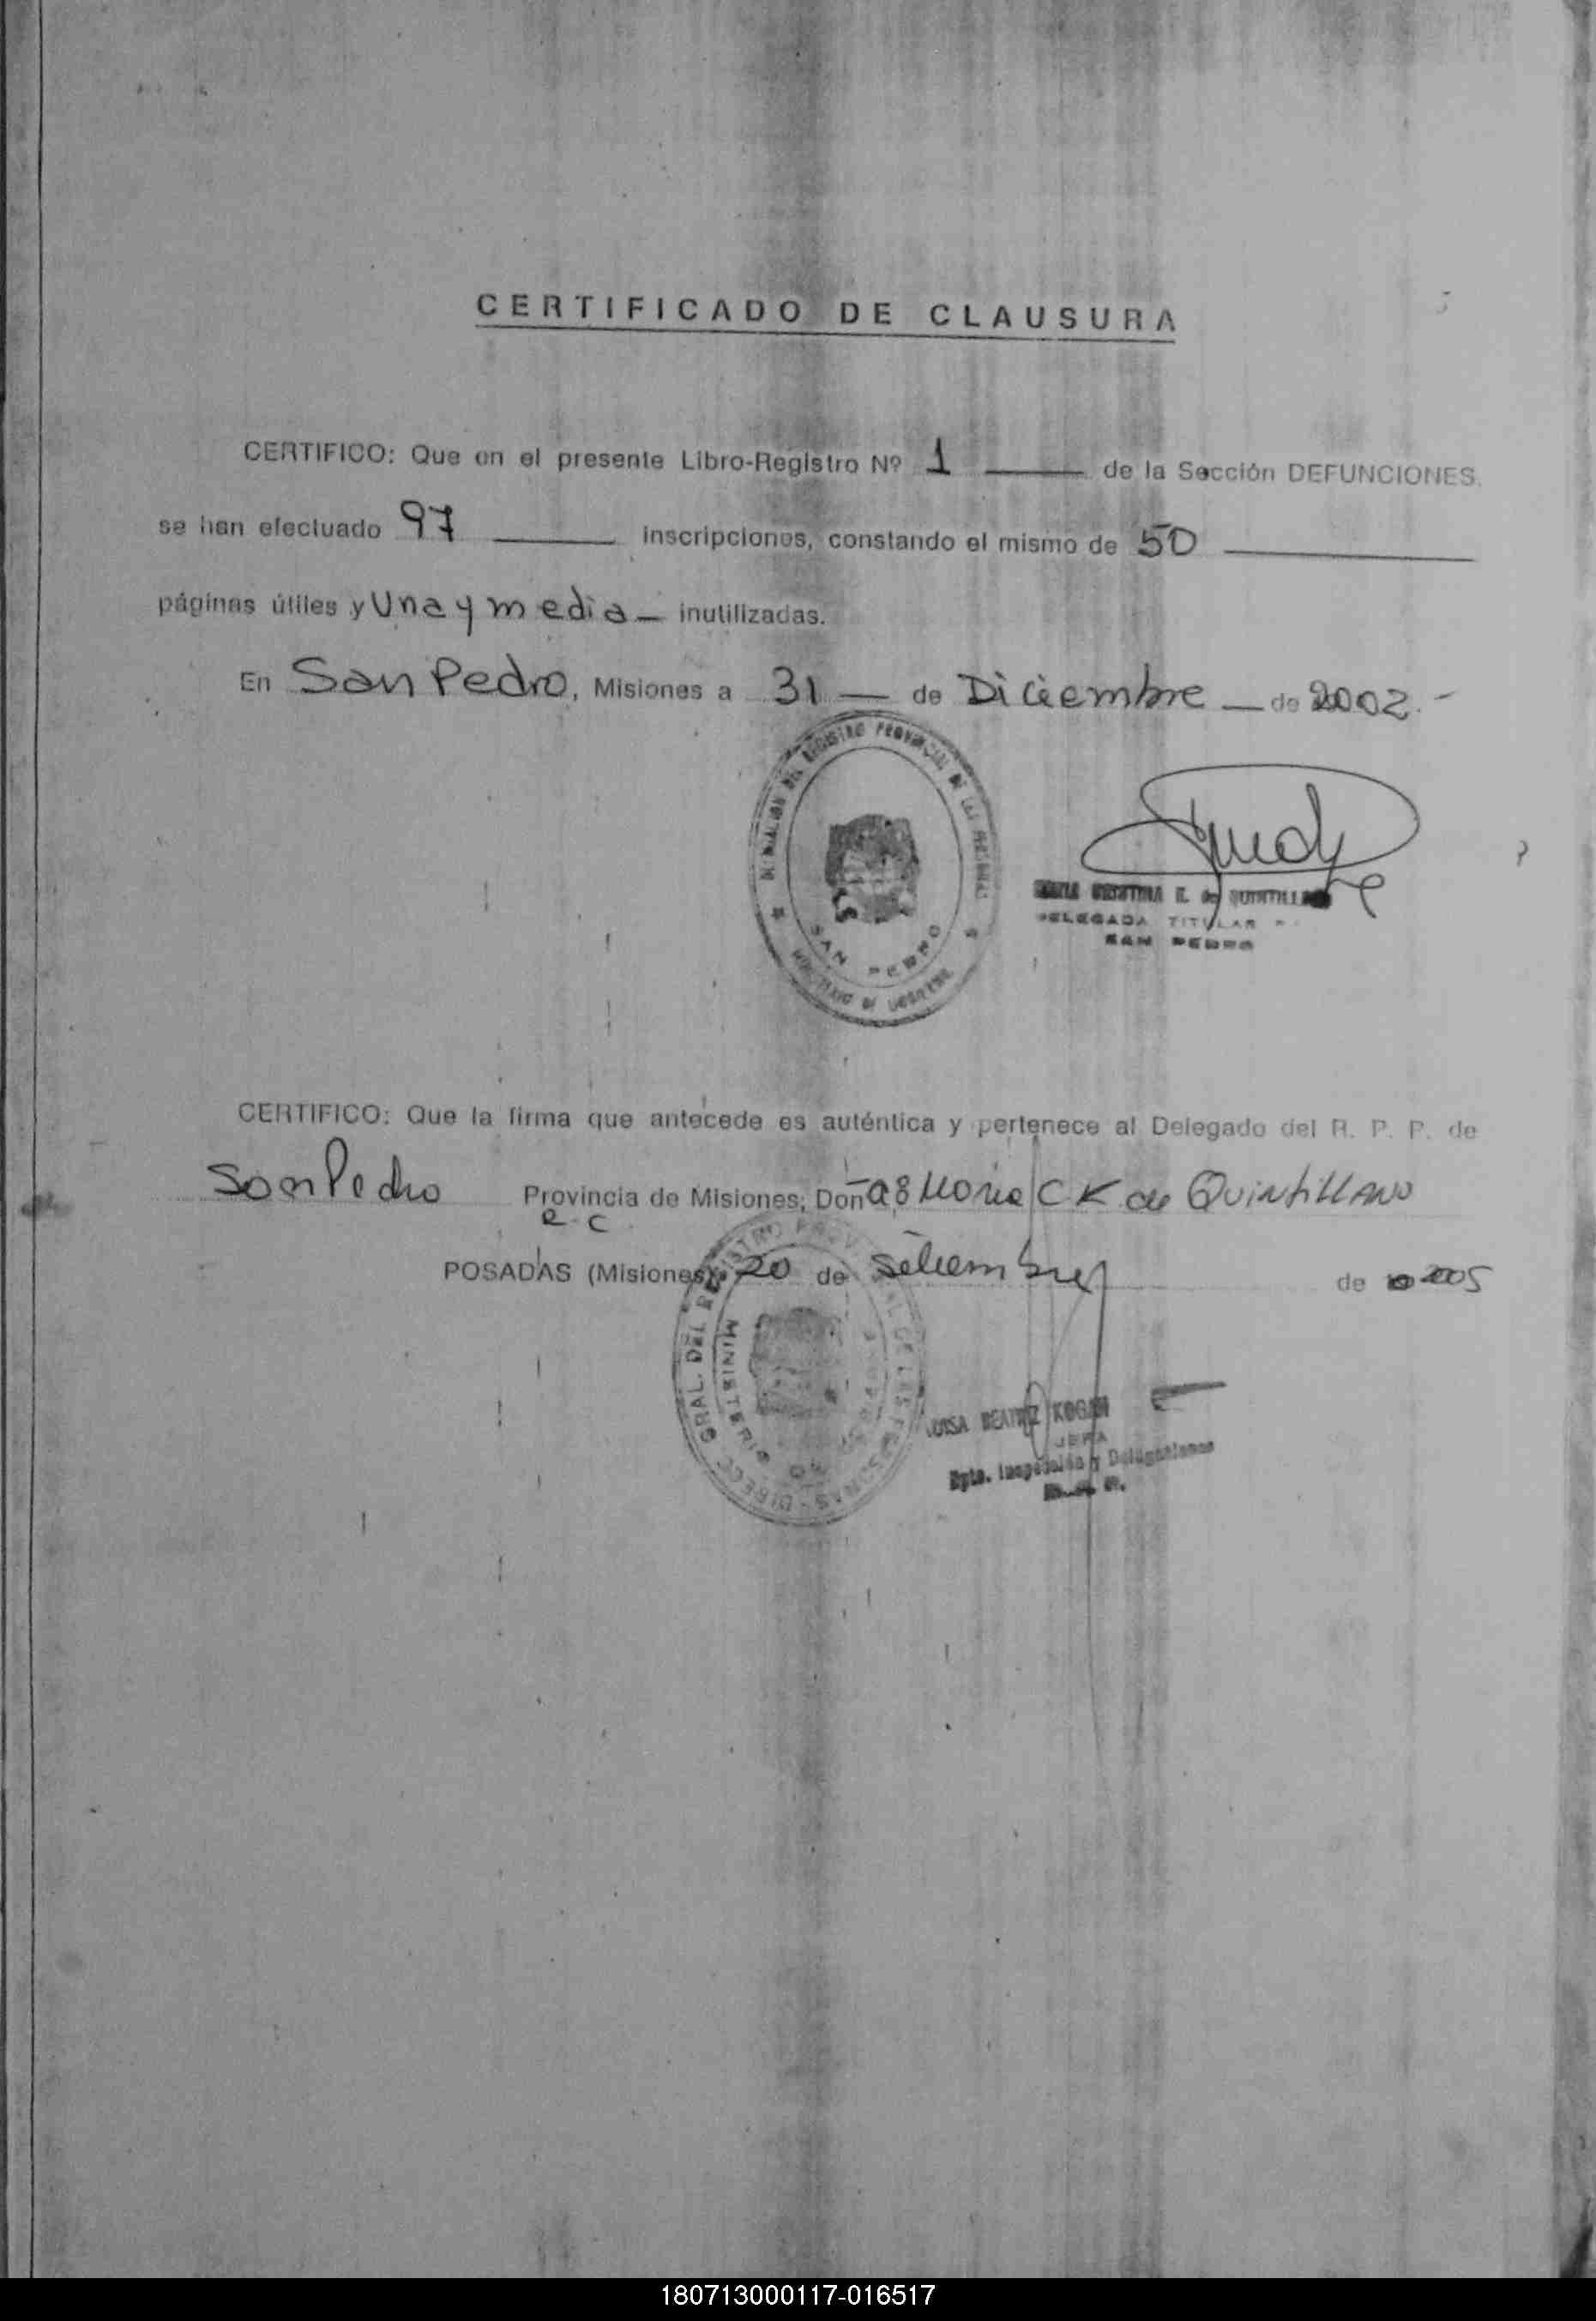 CERTIFICADO DE CLAUSURA
CERTIFICO: Que en el presente Libro-Registro Nº 1 de la Sección DEFUNCIONES.
se han efectuado 97 inscripciones, constando el mismo de 50
páginas útiles y Una y media - inutilizadas.
En San Pedro, Misiones a 31 - de Diciembre - de 2002.-
REGISTRO PROVINCIAL DE LAS PERSONAS
SAN PEDRO
MINISTERIO DE GOBIERNO
K. de QUINTILLANO
DELEGADA TITULAR
SAN PEDRO
CERTIFICO: Que la firma que antecede es auténtica y pertenece al Delegado del R. P. P. de
San Pedro Provincia de Misiones, Doña Maria C K de Quintillano
POSADAS (Misiones), 20 de setiembre de 2005
DIRECC. GRAL. DEL REGISTRO PROVINCIAL DE LAS PERSONAS
MINISTERIO
LUISA BEATRIZ KOGAN
JEFA
Dpto. Inspección y Delegaciones
180713000117-016517